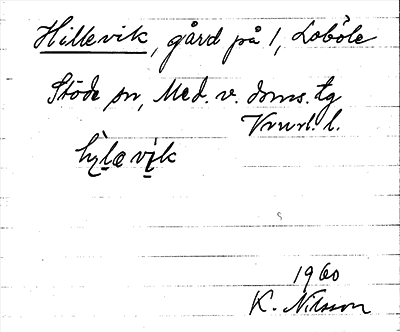 Hillevik, gård på 1, Loböle
Stöde sn, Med. v. doms. tg
Vnorl. l.
hìlævik
1960
K. Nilsson